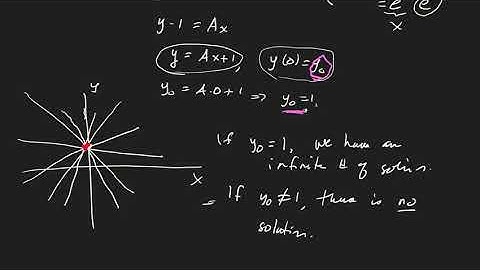 = e e
x
y-1 = Ax
y = Ax+1, y(0)=y₀
y₀ = A·0+1 ⇒ y₀=1,
y
x
If y₀=1, we have an
infinite # of solns.
= If y₀≠1, there is no
solution.